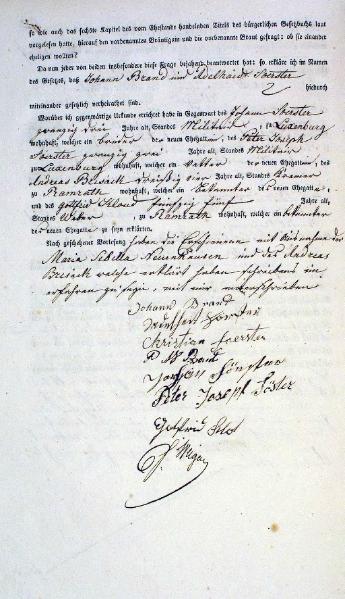 so wie auch das sechste Kapitel des vom Ehestande handelnden Titels des bürgerlichen Gesetzbuchs laut
vorgelesen hatte, hierauf den vorbenannten Bräutigam und die vorbenannte Braut gefragt: ob sie einander
ehelichen wollten?
Da nun jeder von beiden insbesondere diese Frage bejahend beantwortet hatte, so erkläre ich im Namen
des Gesetzes, daß Johann Brand und Adelheidt Soerster
hiedurch
miteinander gesetzlich verheirathet sind.
Worüber ich gegenwärtige Urkunde errichtet habe in Gegenwart des Johann Soerster
zwanzig drei Jahre alt, Standes Militair zu Luxenburg
wohnhaft, welcher ein bruder der neuen Ehegattin, des Peter Joseph
Soerster zwanzig zwei Jahre alt, Standes Militair
zu Luxenburg wohnhaft, welcher ein Vetter der neuen Ehegattin, des
Andreas Busack dreißig vier Jahre alt, Standes Kramer
zu Ramrath wohnhaft, welcher ein bekannter der neuen Ehegattin,
und des Gottfried fünfzig fünf Jahre alt,
Standes Weber zu Ramrath wohnhaft, welcher ein bekannter
der neuen Ehegattin zu seyn erklärten.
Nach geschehener Vorlesung haben die Erschienenen mit Ausnahme der
Maria Sibella und des Andreas
Busack welche erklärt haben schreibens
unterschrieben
Johann Brand
Christian Soerster
Brand
Johann
Peter Joseph Förster
Gotfried